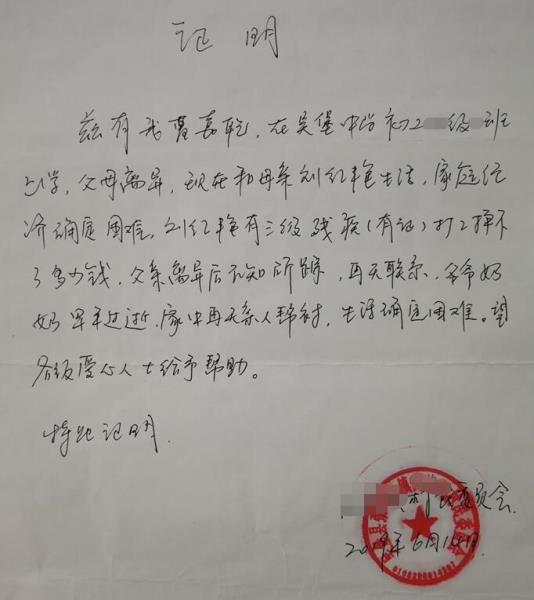 证明
兹有我曹嘉乾,在吴堡中学初2 级 班
上学,父母离异,现在和母亲刘红艳生活,家庭经
济确是困难,刘红艳有三级残疾(有证)打工挣不
了多少钱,父亲离异后不知所踪,再无联系,爷爷奶
奶早年过逝,家中再无亲人帮衬,生活确是困难。望
各级爱心人士给予帮助。
特此证明.
村民委员会.
2019年6月14日.